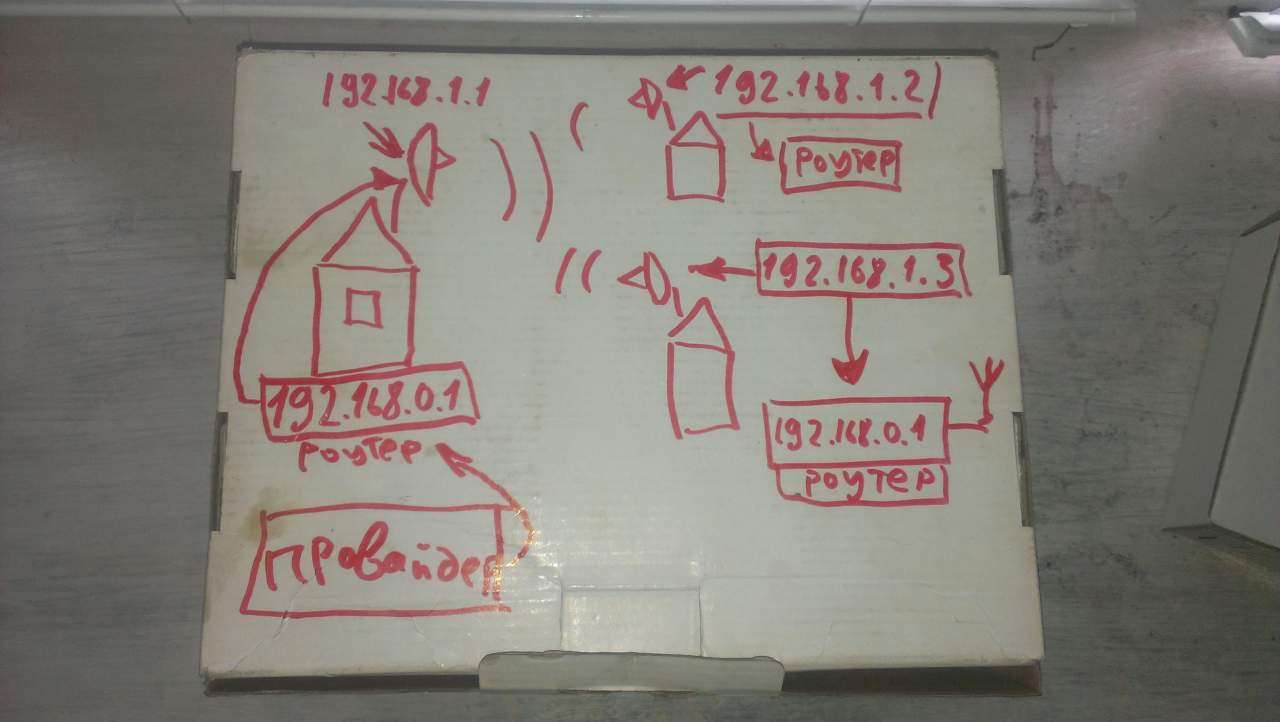 192.168.1.1
192.168.1.2
роутер
192.168.1.3
192.168.0.1
роутер
192.168.0.1
роутер
провайдер